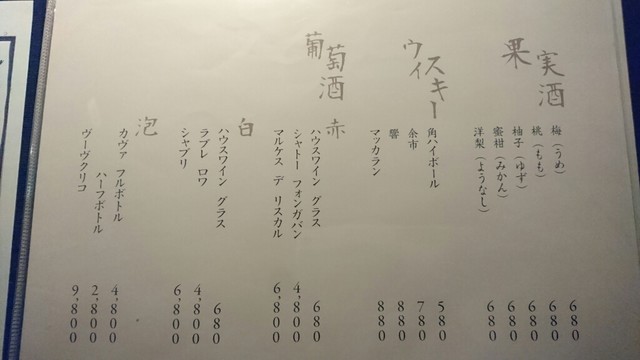 果実酒
梅（うめ） 680
桃（もも） 680
柚子（ゆず） 680
蜜柑（みかん） 680
洋梨（ようなし） 680
ウィスキー
角ハイボール 580
余市 780
響 880
マッカラン 880
葡萄酒
赤
ハウスワイン グラス 680
シャトー フォンガバン 4,800
マルケス デ リスカル 6,800
白
ハウスワイン グラス 680
ラブレ ロワ 4,800
シャブリ 6,800
泡
カヴァ フルボトル 4,800
ハーフボトル 2,800
ヴーヴクリコ 9,800